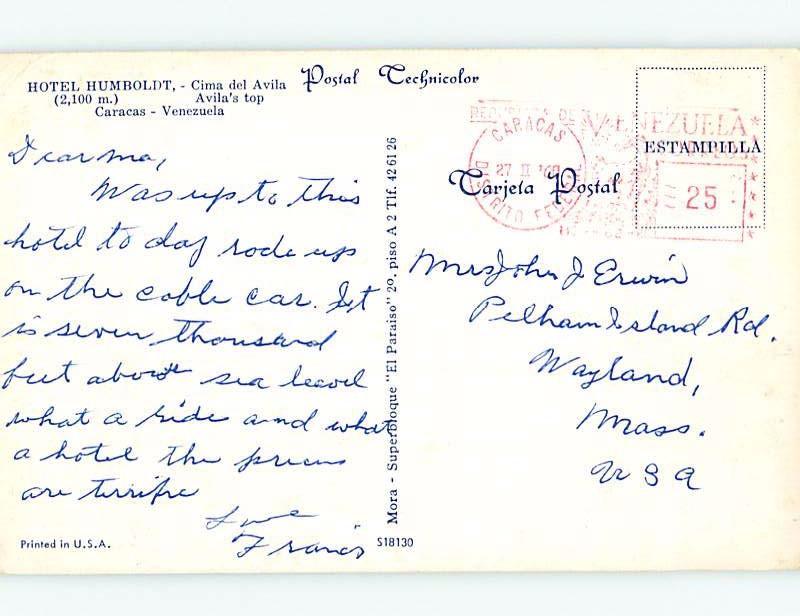 HOTEL HUMBOLDT, - Cima del Avila
(2,100 m.) Avila's top
Caracas - Venezuela
Postal Technicolor
Dear ma,
Was up to this
hotel to day rode up
on the cable car. It
is seven thousand
feet above sea leavel
what a ride and what
a hotel the prices
are terrific
Love
Francis
Printed in U.S.A.
Mora - Superbloque "El Paraiso" 20, piso A 2 Tlf. 42 61 26
S18130
VENEZUELA
CARACAS
27 II
DISTRITO FEDERAL
ESTAMPILLA
25
Tarjeta Postal
Mrs John J Erwin
Pelham Island Rd.
Wayland,
Mass.
U S A